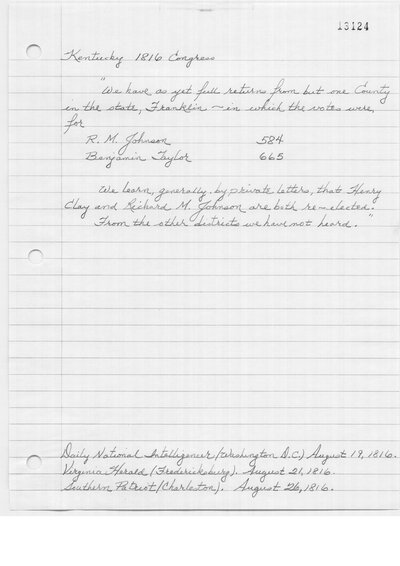 13124
Kentucky 1816 Congress
"We have as yet full returns from but one County
in the state, Franklin - in which the votes were
for
R. M. Johnson 584
Benjamin Taylor 665
We learn, generally, by private letters, that Henry
Clay and Richard M. Johnson are both re-elected.
From the other districts we have not heard."
Daily National Intelligencer (Washington D.C.) August 19, 1816.
Virginia Herald (Fredericksburg). August 21, 1816.
Southern Patriot (Charleston). August 26, 1816.